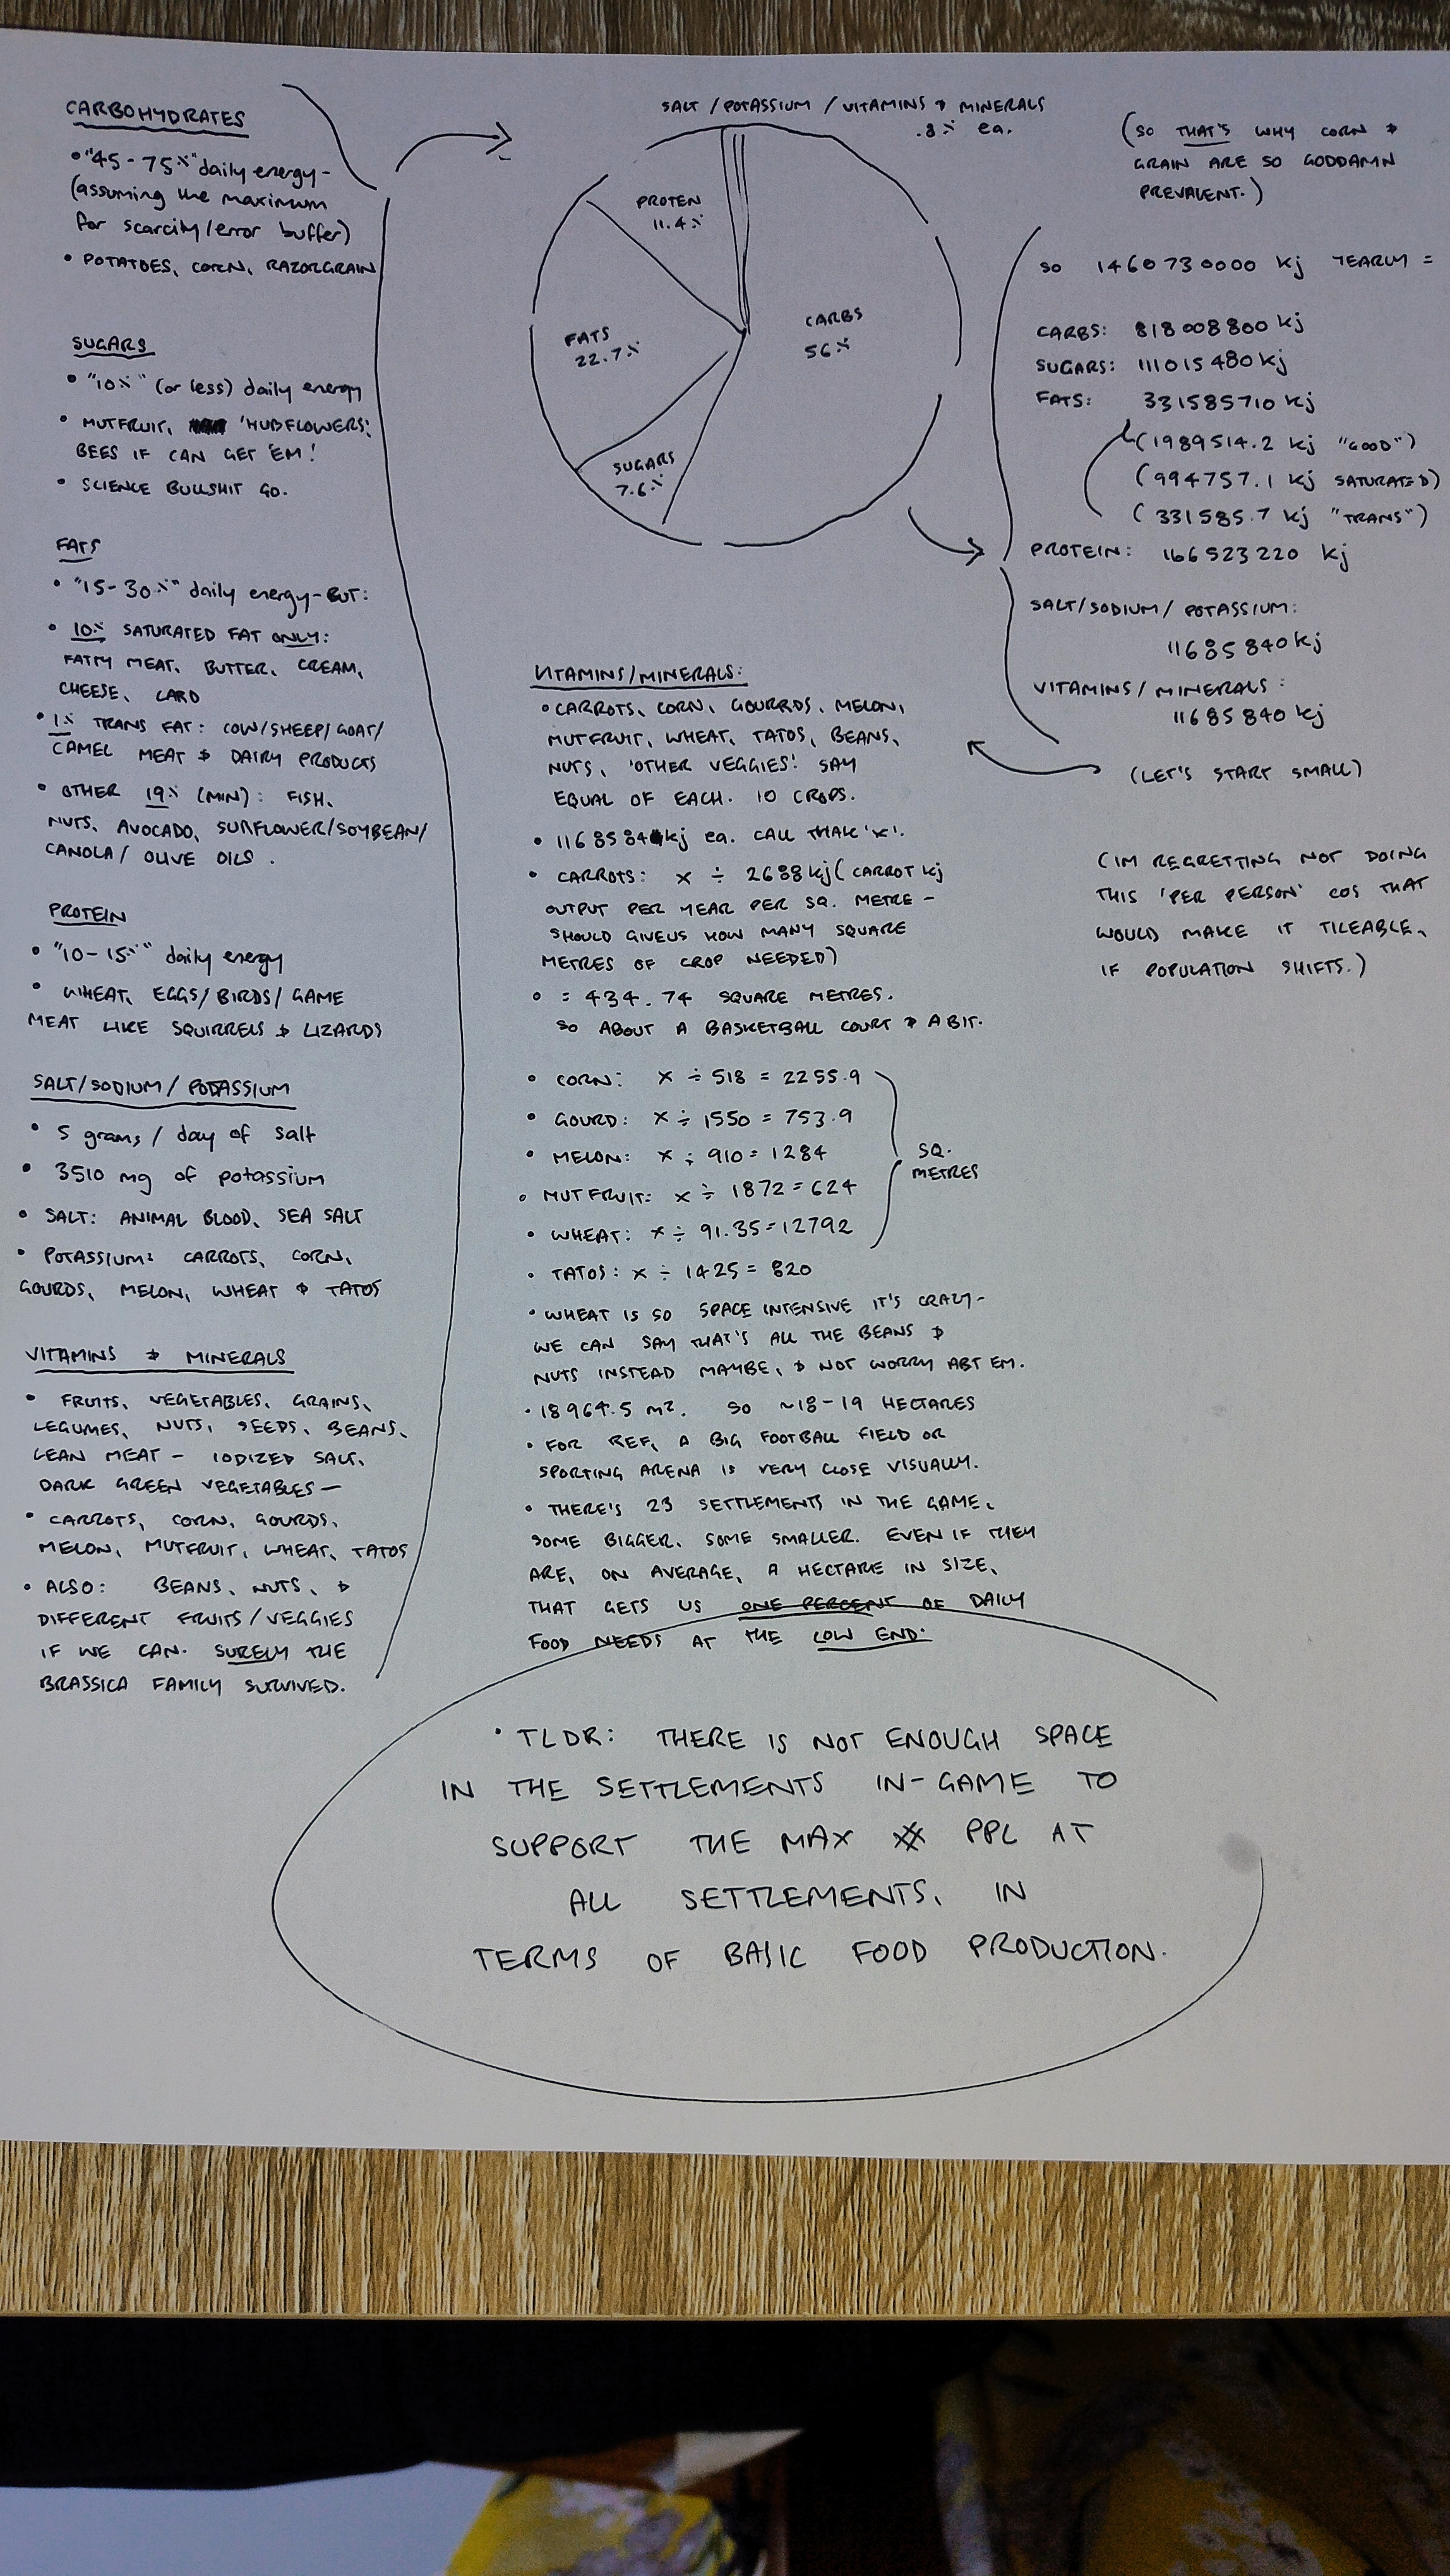 CARBOHYDRATES
• "45-75%" daily energy-
(assuming the maximum
for scarcity/error buffer)
• POTATOES, CORN, RAZORGRAIN
SUGARS
• "10%" (or less) daily energy
• MUTFRUIT, 'HUBFLOWERS',
BEES IF CAN GET 'EM!
• SCIENCE BULLSHIT GO.
FATS
• "15-30%" daily energy-BUT:
• 10% SATURATED FAT ONLY:
FATTY MEAT, BUTTER, CREAM,
CHEESE, LARD
• 1% TRANS FAT: COW/SHEEP/GOAT/
CAMEL MEAT & DAIRY PRODUCTS
• OTHER 19% (MIN): FISH,
NUTS, AVOCADO, SUNFLOWER/SOYBEAN/
CANOLA/ OLIVE OILS.
PROTEIN
• "10-15%" daily energy
• WHEAT, EGGS/BIRDS/GAME
MEAT LIKE SQUIRRELS & LIZARDS
SALT/SODIUM/POTASSIUM
• 5 grams/day of salt
• 3510 mg of potassium
• SALT: ANIMAL BLOOD, SEA SALT
• POTASSIUM: CARROTS, CORN,
GOURDS, MELON, WHEAT & TATOS
VITAMINS & MINERALS
• FRUITS, VEGETABLES, GRAINS,
LEGUMES, NUTS, SEEDS, BEANS,
LEAN MEAT - IODIZED SALT,
DARK GREEN VEGETABLES-
• CARROTS, CORN, GOURDS,
MELON, MUTFRUIT, WHEAT, TATOS
• ALSO: BEANS, NUTS, &
DIFFERENT FRUITS/VEGGIES
IF WE CAN. SURELY THE
BRASSICA FAMILY SURVIVED.
SALT/POTASSIUM/VITAMINS & MINERALS
.8% ea.
PROTEN
11.4%
FATS
22.7%
CARBS
56%
SUGARS
7.6%
VITAMINS/MINERALS:
• CARROTS, CORN, GOURRDS, MELON,
MUTFRUIT, WHEAT, TATOS, BEANS,
NUTS, 'OTHER VEGGIES'. SAY
EQUAL OF EACH. 10 CROPS.
• 1168584kj ea. CALL THAT 'X'.
• CARROTS: X ÷ 2688kj (CARROT kj
OUTPUT PER YEAR PER SQ. METRE -
SHOULD GIVE US HOW MANY SQUARE
METRES OF CROP NEEDED)
• = 434.74 SQUARE METRES.
SO ABOUT A BASKETBALL COURT & A BIT.
• CORN: X ÷ 518 = 2255.9
• GOURD: X ÷ 1550 = 753.9
• MELON: X ÷ 910 = 1284
• MUTFRUIT: X ÷ 1872 = 624
• WHEAT: X ÷ 91.35 = 12792
SQ.
METRES
• TATOS: X ÷ 1425 = 820
• WHEAT IS SO SPACE INTENSIVE IT'S CRAZY-
WE CAN SAY THAT'S ALL THE BEANS &
NUTS INSTEAD MAYBE, & NOT WORRY ABT EM.
• 18964.5 m². SO ~18-19 HECTARES
• FOR REF, A BIG FOOTBALL FIELD OR
SPORTING ARENA IS VERY CLOSE VISUALLY.
• THERE'S 23 SETTLEMENTS IN THE GAME,
SOME BIGGER, SOME SMALLER. EVEN IF THEY
ARE, ON AVERAGE, A HECTARE IN SIZE,
THAT GETS US ONE PERCENT OF DAILY
FOOD NEEDS AT THE LOW END.
(SO THAT'S WHY CORN &
GRAIN ARE SO GODDAMN
PREVALENT.)
SO 1460730000 kj YEARLY =
CARBS: 818008800 kj
SUGARS: 111015480 kj
FATS: 331585710 kj
(1989514.2 kj "GOOD")
(994757.1 kj SATURATED)
(331585.7 kj "TRANS")
PROTEIN: 166523220 kj
SALT/SODIUM/POTASSIUM:
11685840 kj
VITAMINS/MINERALS:
11685840 kj
(LET'S START SMALL)
(IM REGRETTING NOT DOING
THIS 'PER PERSON' COS THAT
WOULD MAKE IT TILEABLE,
IF POPULATION SHIFTS.)
• TLDR: THERE IS NOT ENOUGH SPACE
IN THE SETTLEMENTS IN-GAME TO
SUPPORT THE MAX # PPL AT
ALL SETTLEMENTS, IN
TERMS OF BASIC FOOD PRODUCTION.